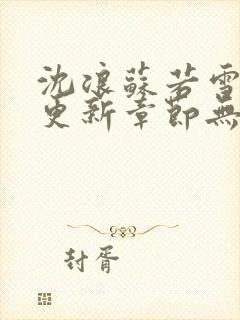 沈浪蘇若雪
更新章節無
封胥